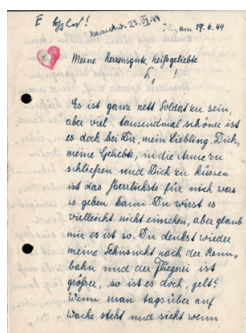 am 19.6.44
Meine herzensgute, heißgeliebte
Es ist ganz nett Soldat zu sein,
aber viel, tausendmal schöner ist
es doch bei Dir, mein Liebling. Dich,
meine Geliebte, in die Arme zu
schließen und Dich zu küssen
ist das Herrlichste für mich was
es geben kann. Du wirst es
vielleicht nicht einsehen, aber glaub
mir es ist so. Du denkst wieder
meine Sehnsucht nach der Renn-
bahn und der Fliegerei ist
größer, so ist es doch, gelt?
Wenn man tagsüber auf
Wache steht und sieht wenn